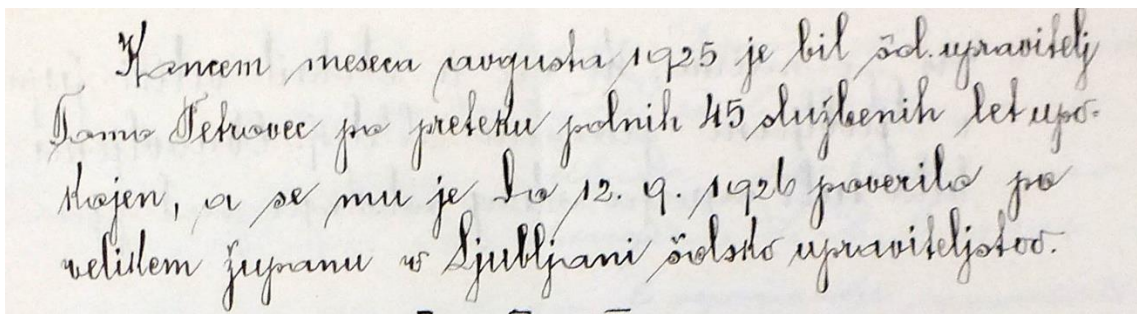 Koncem meseca avgusta 1925 je bil šol. upravitelj
Tomo Petrovec po preteku polnih 45 službenih let upo-
kojen, a se mu je do 12. 9. 1926 poverilo po
velikem županu v Ljubljani šolsko upraviteljstvo.